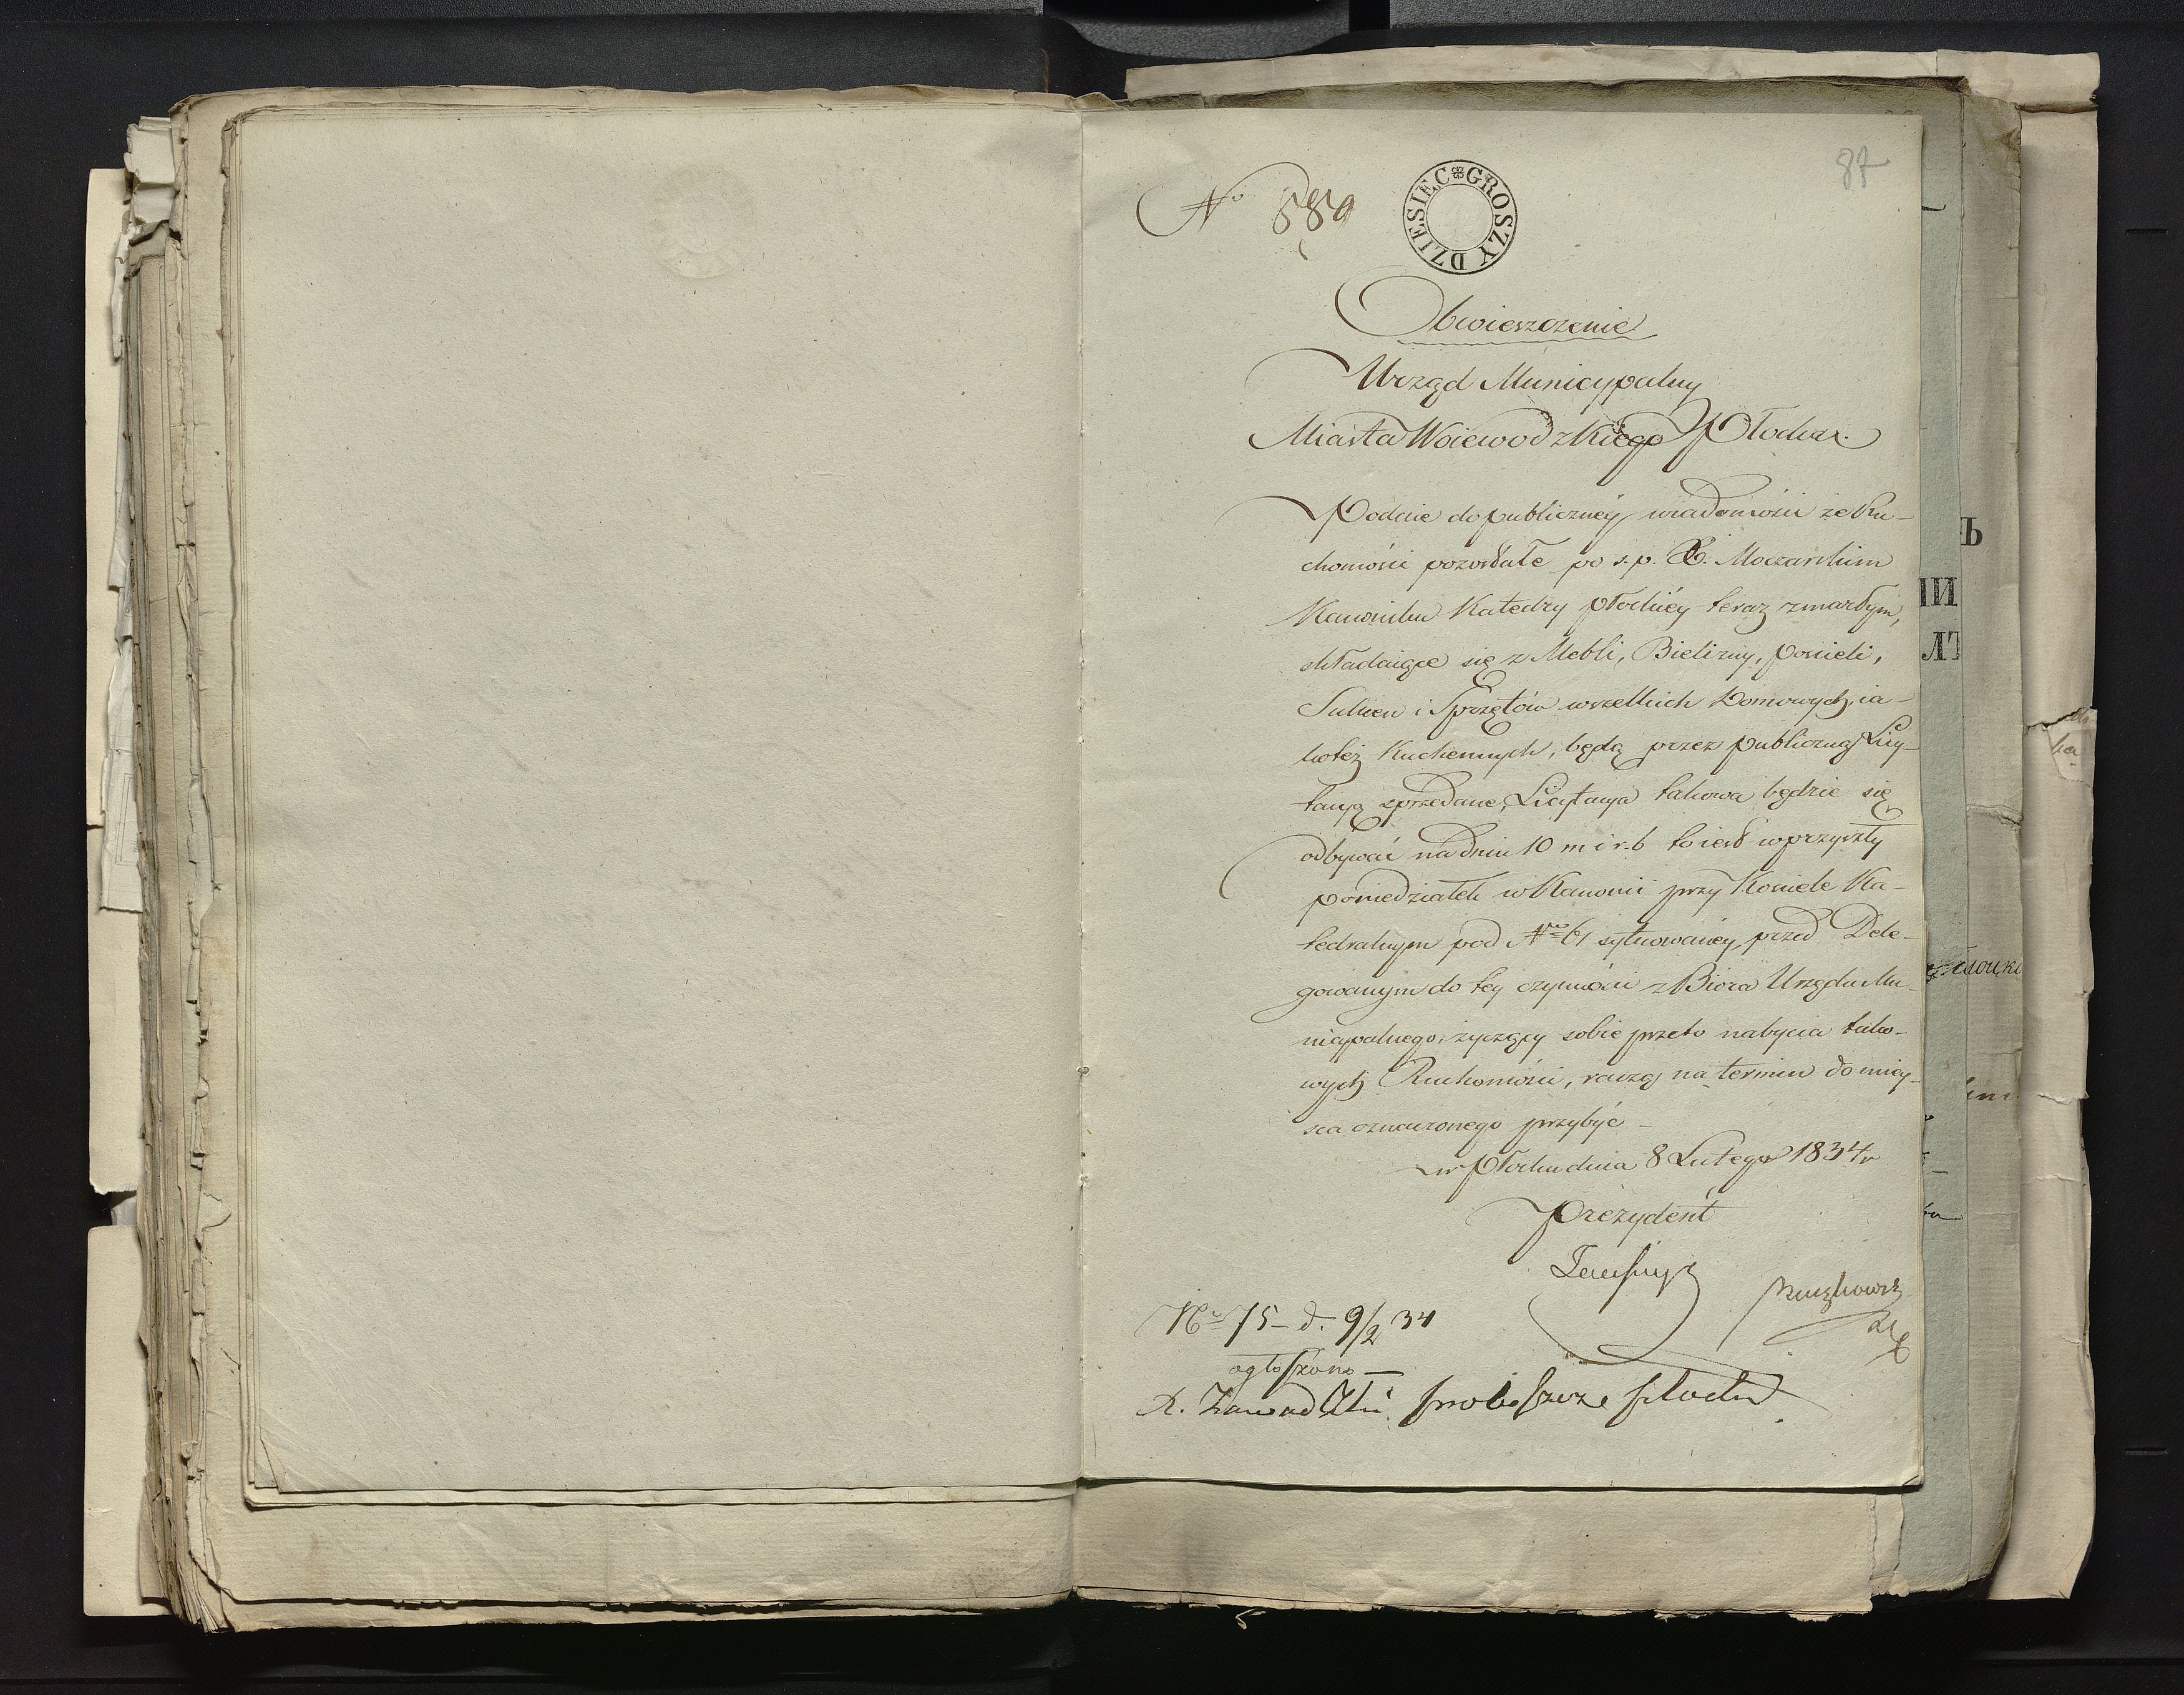 87
N° 580
DZIESIEC GROSZY
Obwieszczenie
Urząd Municypalny
Miasta Woiewodzkiego Płocka.
Podaie do publiczney wiadomości że Ru-
chomości pozostałe po ś. p. X. Moczarskim
Kanoniku Katedry płockiéy teraz zmarłym,
składaiące się z Mebli, Bielizny, pościeli,
Sukien i Sprzętów wszelkich Domowych, ia-
kotéż Kuchennych, będą przez publiczną Licy-
tacyą sprzedane, Licytacya takowa będzie się
odbywać na dniu 10 m i r. b to iest w przyszły
poniedziałek w Kanonii przy Kościele Ka-
tedralnym pod N° 61 sytuowanéy, przed Dele-
gowanym do téy czynności z Bióra Urzędu Mu-
nicypalnego, życzący sobie przeto nabycia tako-
wych Ruchomości, raczą na termin do miey-
sca oznaczonego przybyć -
w Płocku dnia 8 Lutego 1834 r
Prezydent
N° 75 - d. 9/2 34
ogłoszono -
X. Zawadzki proboszcz płocki
Ъ
ЛТ